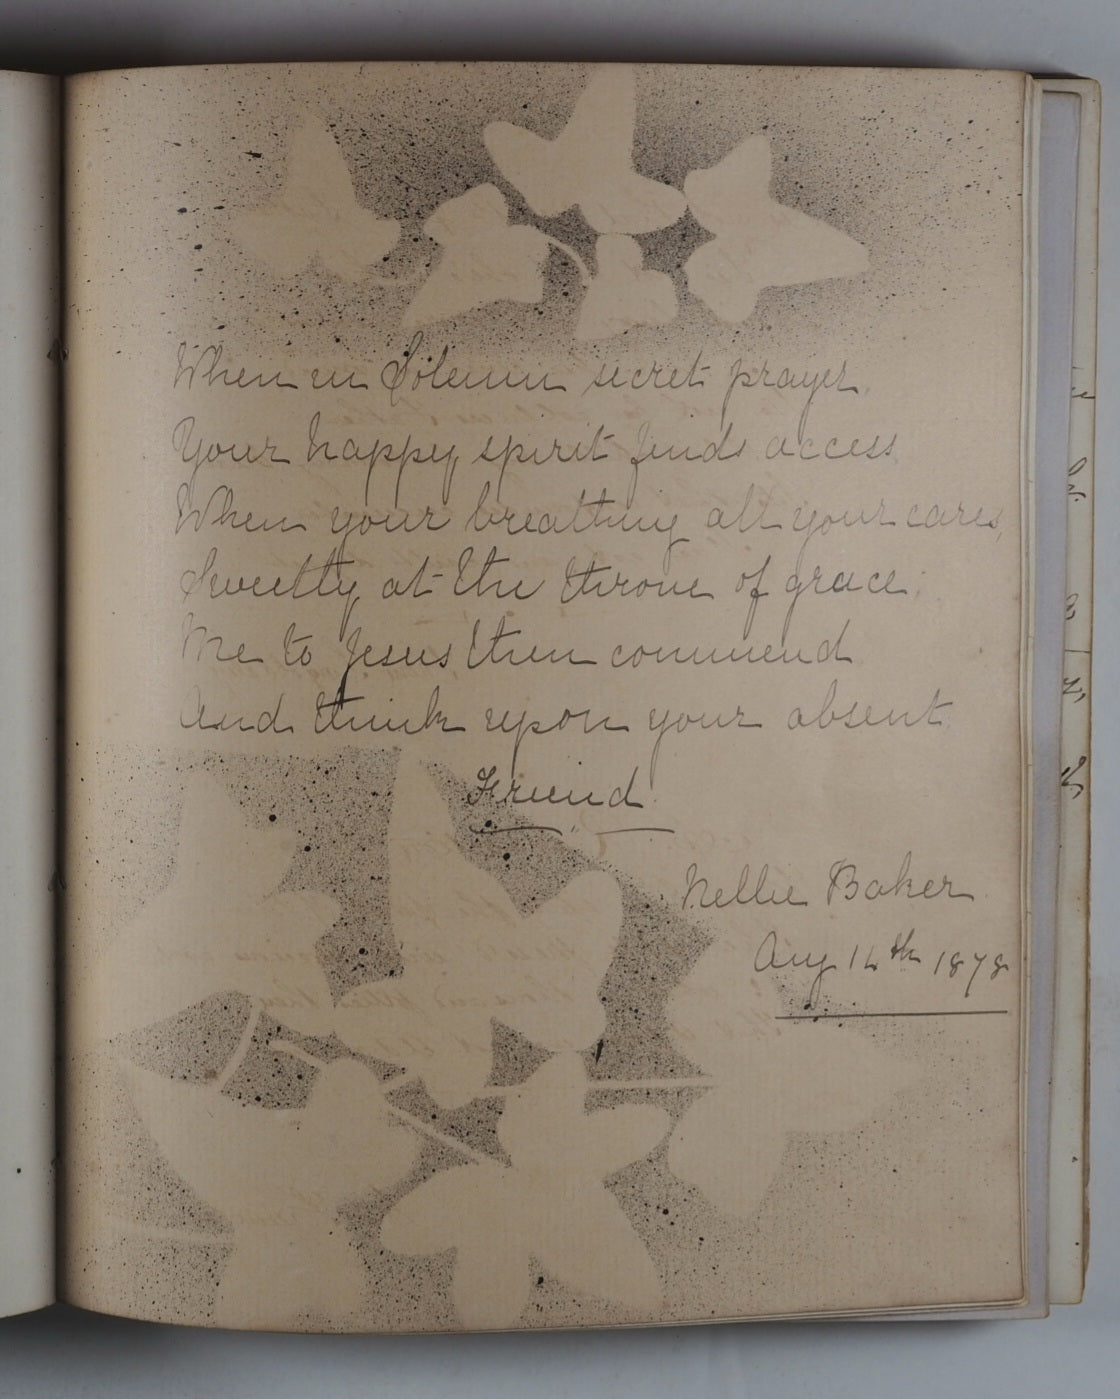 When in Solemn secret prayer
Your happy spirit finds access
When your breathing all your cares,
Sweetly at the throne of grace,
Me to Jesus then commend
And think upon your absent
Friend
Nellie Baker
Aug 14th 1878